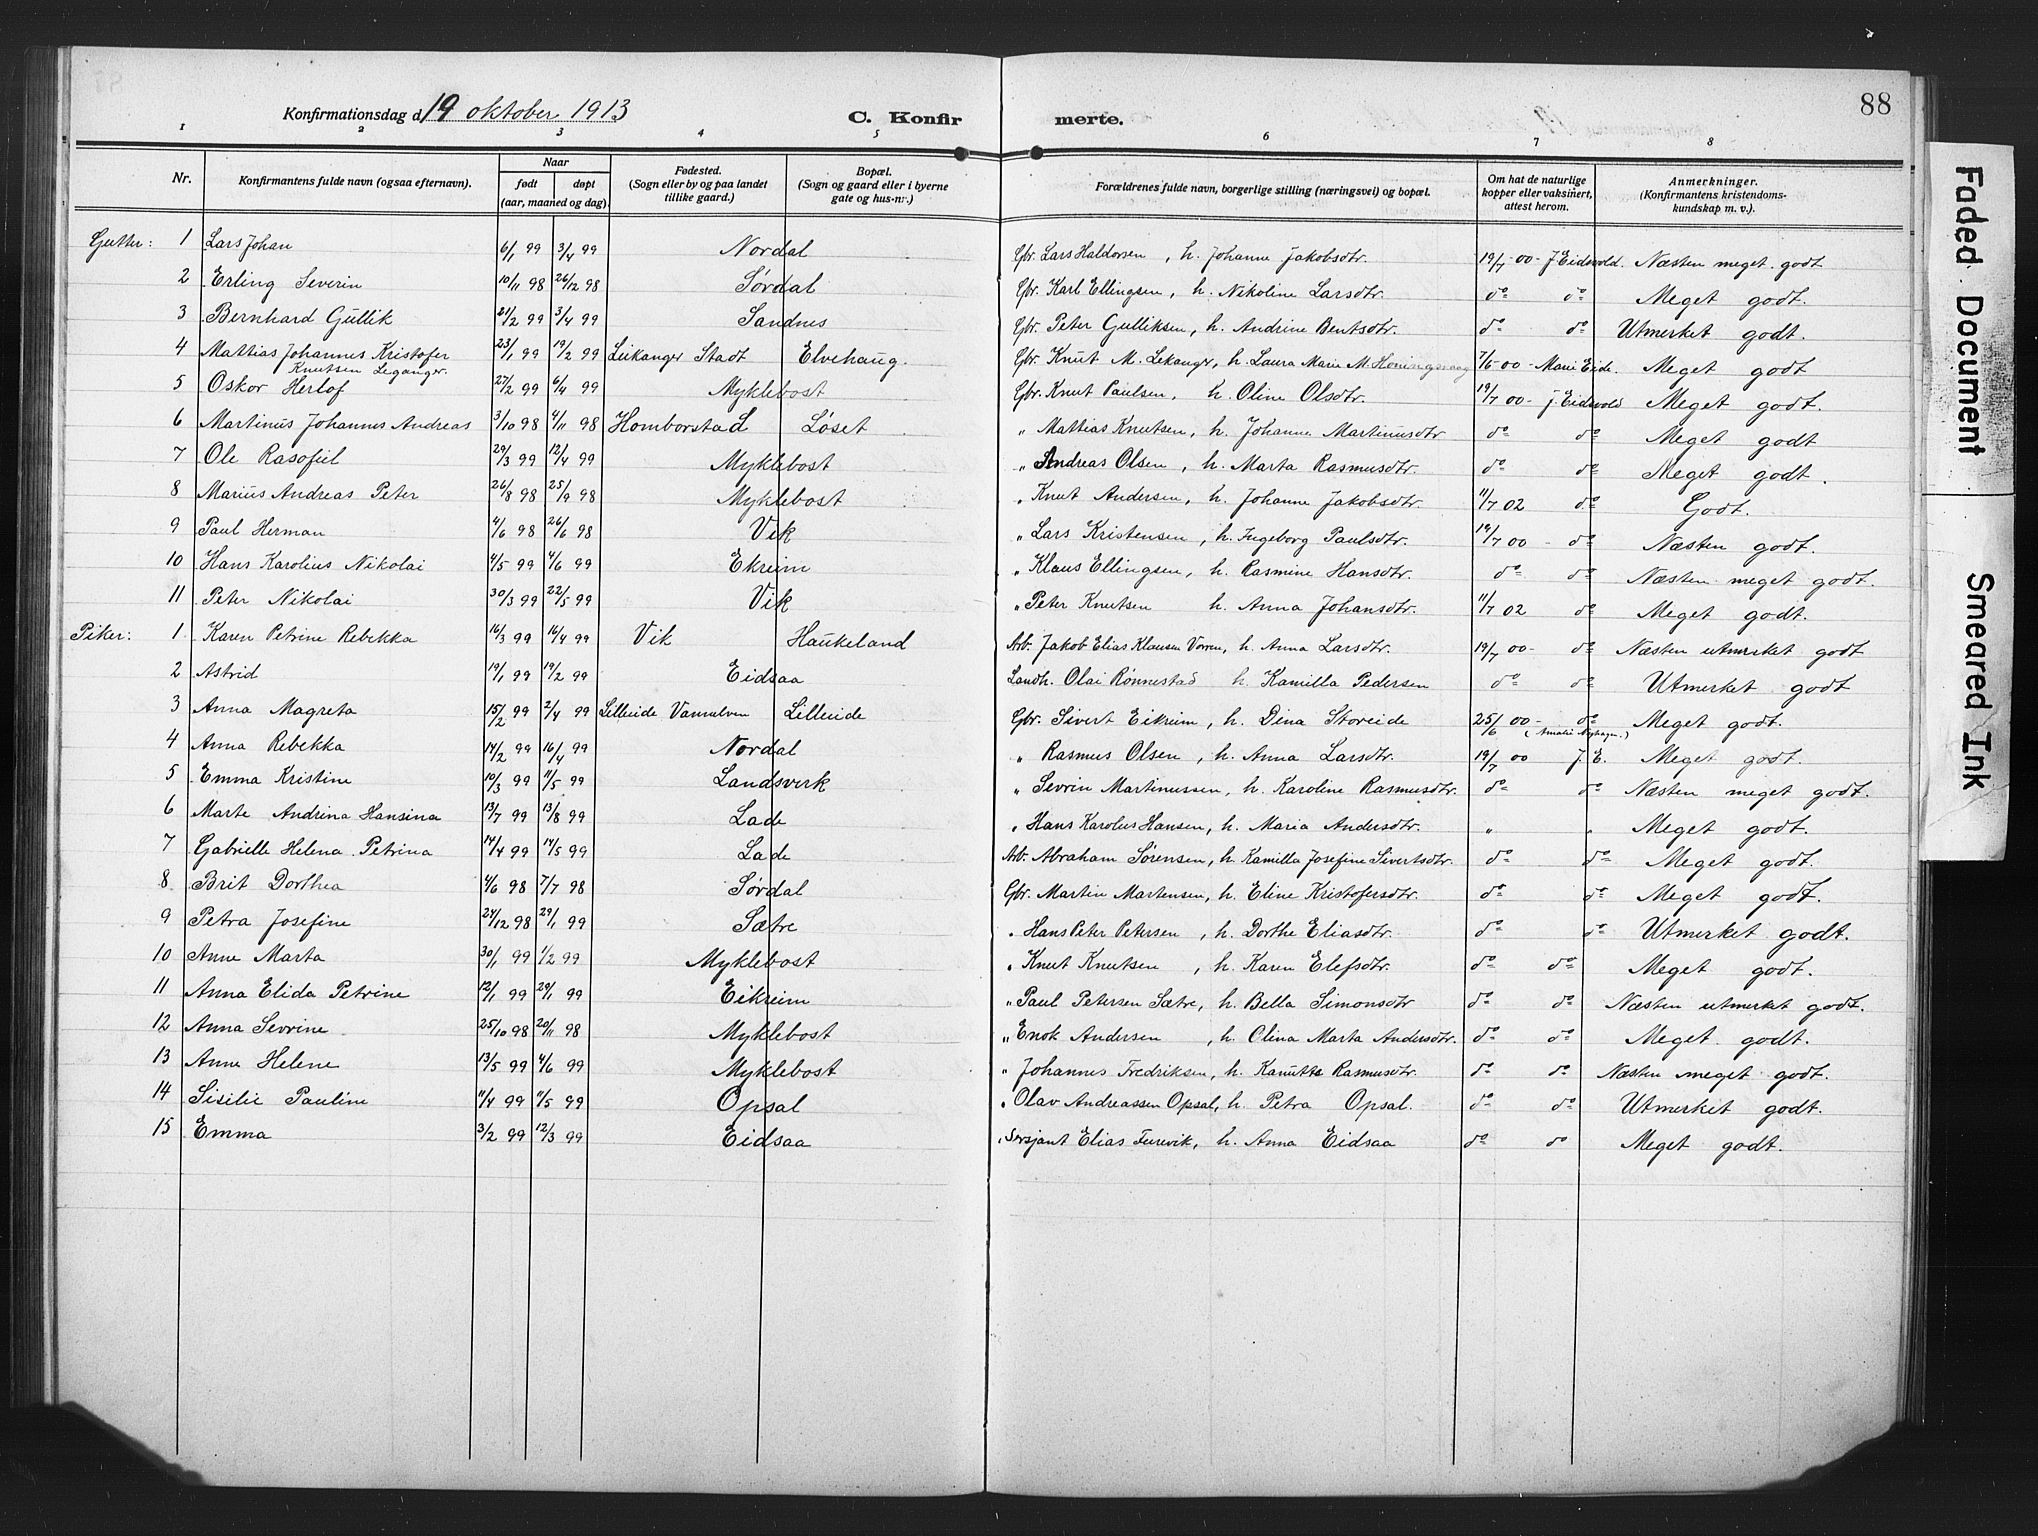 88
Konfirmationsdag d. 19 oktober 1913
C. Konfirmerte.
1 2 3 4 5 6 7 8
Nr. Konfirmantens fulde navn (ogsaa efternavn). Naar født døpt (aar, maaned og dag). Fødested. (Sogn eller by og paa landet tillike gaard.) Bopæl. (Sogn og gaard eller i byerne gate og hus-nr.) Forældrenes fulde navn, borgerlige stilling (næringsvei) og bopæl. Om hat de naturlige kopper eller vaksinert, attest herom. Anmerkninger. (Konfirmantens kristendoms-kundskap m. v.).
Gutter: 1 Lars Johan 6/1 99 3/4 99 Nordal Gbr. Lars Haldorsen, h. Johanne Jakobsdtr. 19/7 00 - J. Eidsvold. Næsten meget godt
2 Erling Severin 10/11 98 26/12 98 Sørdal Gbr. Karl Ellingsen, h. Nikoline Larsdtr. do do Meget godt.
3 Bernhard Gullik 21/2 99 3/4 99 Sandnes Gbr. Peter Gulliksen, h. Andrine Bentsdtr. do do Utmerket godt.
4 Mattias Johannes Kristofer Knutsen Leganger. 23/1 99 19/2 99 Leikanger Stadt Elvehaug. Gbr. Knut M. Lekanger, h. Laura Marie M. Honingsvaag 7/5 00 - Marie Eide. Meget godt
5 Oskor Herlof 27/2 99 6/4 99 Myklebost Gbr. Knut Paulsen, h. Oline Olsdtr. 19/7 00 - J. Eidsvold Meget godt.
6 Martinus Johannes Andreas 3/10 98 4/11 98 Homborstad Løset " Mattias Knutsen, h. Johanne Martinusdtr do do Meget godt
7 Ole Rasofiel 29/3 99 12/4 99 Myklebost " Andreas Olsen, h. Marta Rasmusdtr. do do Meget godt.
8 Marius Andreas Peter 26/8 98 25/9 98 Myklebost " Knut Andersen, h. Johanne Jakobsdtr. 11/7 02 do Godt.
9 Paul Herman 4/6 98 26/6 98 Vik " Lars Kristensen, h. Ingeborg Paulsdtr. 19/7 00 - do Næsten godt.
10 Hans Karolius Nikolai 4/5 99 4/6 99 Ekreim " Klaus Ellingsen, h. Rasmine Hansdtr. do do Næsten meget godt.
11 Peter Nikolai 30/3 99 22/5 99 Vik " Peter Knutsen h. Anna Johansdtr. 11/7 02 do Meget godt.
Piker: 1 Karen Petrine Rebekka 16/3 99 16/4 99 Vik Haukeland Arb. Jakob Elias Klausen Vorren, h. Anna Larsdtr. 19/7 00 - do Næsten utmerket godt
2 Astrid 19/1 99 19/2 99 Eidsaa Landh. Olai Rønnestad h. Kamilla Pedersen do do Utmerket godt
3 Anna Magreta 15/2 99 2/4 99 Lilleeide Vannelven Lilleeide Gbr. Sivert Eikreim, h. Dina Storeide 25/6 00 - do Meget godt.
4 Anna Rebekka 14/2 99 16/4 99 Nordal " Rasmus Olsen, h. Anna Larsdtr. 19/7 00 J. E. Meget godt.
5 Emma Kristine 10/3 99 11/5 99 Landsverk " Sevrin Martinussen, h. Karoline Rasmusdtr. do do Næsten meget godt.
6 Marte Andrina Hansina 13/7 99 13/8 99 Lade " Hans Karolus Hansen, h. Maria Andersdtr. " " Meget godt.
7 Gabrielle Helena Petrina 14/4 99 14/5 99 Lade Arb. Abraham Sørensen, h. Kamilla Josefine Sivertsdtr. do do Meget godt.
8 Brit Dorthea 4/6 98 7/7 98 Sørdal Gbr. Martin Martensen, h. Eline Kristofersdtr. do do Meget godt.
9 Petra Josefine 24/12 98 29/1 99 Sætre " Hans Peter Petersen, h. Dorthe Eliasdtr. do do Utmerket godt.
10 Anne Marta 30/1 99 1/2 99 Myklebost " Knut Knutsen, h. Karen Elefsdtr. do do Meget godt.
11 Anna Elida Petrine 12/1 99 29/1 99 Eikreim " Paul Petersen Sætre, h. Bella Simonsdtr do do Næsten utmerket godt.
12 Anna Sevrine 25/10 98 20/11 98 Myklebost " Enok Andersen, h. Olina Marta Andersdtr. do do Meget godt.
13 Anne Helene 13/5 99 4/6 99 Myklebost " Johannes Fredriksen, h. Kanutte Rasmusdtr. do do Næsten meget godt.
14 Sisilie Pauline 11/4 99 11/5 99 Opsal " Olav Andreassen Opsal, h. Petra Opsal. do do Utmerket godt.
15 Emma 3/2 99 12/3 99 Eidsaa " Sersjant Elias Furevik, h. Anna Eidsaa do do Meget godt.
Faded Document
Smeared Ink